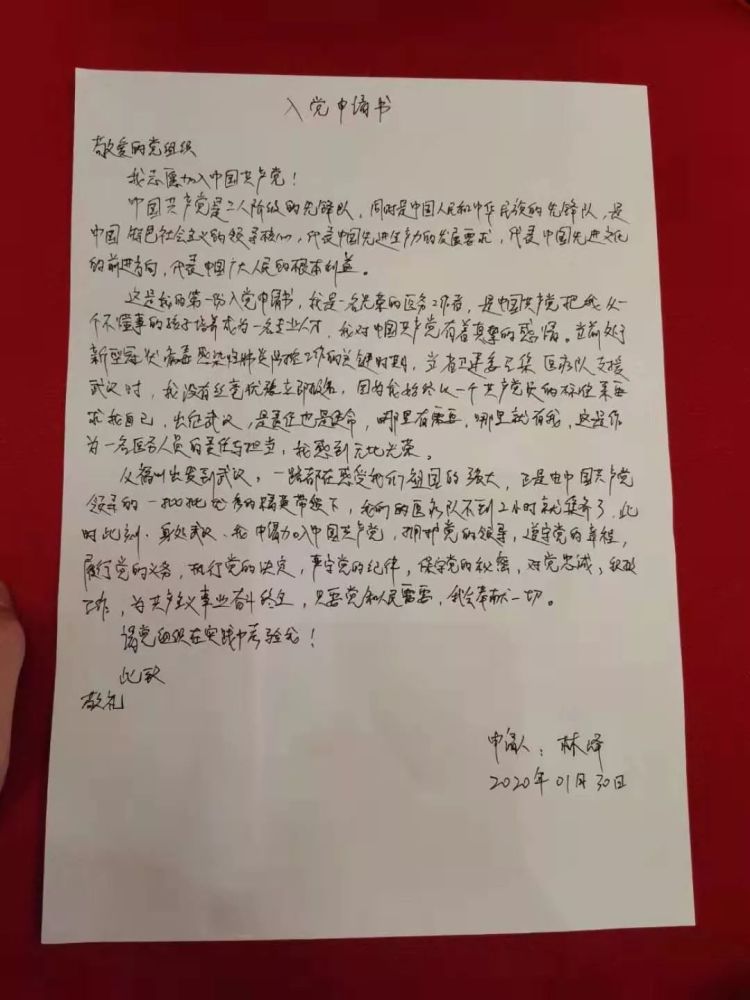 入党申请书
敬爱的党组织
我志愿加入中国共产党！
中国共产党是工人阶级的先锋队，同时是中国人民和中华民族的先锋队，是
中国特色社会主义的领导核心，代表中国先进生产力的发展要求，代表中国先进文化
的前进方向，代表中国广大人民的根本利益。
这是我的第一份入党申请书，我是一名光荣的医务工作者，是中国共产党把我从一
个不懂事的孩子培养成为一名专业人才，我对中国共产党有着真挚的感情。当前处于
新型冠状病毒感染性肺炎防控工作的关键时期，当省卫健委召集医疗队支援
武汉时，我没有丝毫犹豫立即报名，因为我始终以一个共产党员的标准来要
求我自己，出征武汉，是责任也是使命，哪里有需要，哪里就有我，这是作
为一名医务人员的责任与担当，我感到无比光荣。
从福州出发到武汉，一路都在感受我们祖国的强大，正是由中国共产党
领导的一批批优秀的精英带领下，我们的医疗队不到2小时就集齐了，此
时此刻，身处武汉，我申请加入中国共产党，拥护党的领导，遵守党的章程，
履行党的义务，执行党的决定，严守党的纪律，保守党的秘密，对党忠诚，积极
工作，为共产主义事业奋斗终生，只要党和人民需要，我会奉献一切。
请党组织在实践中考验我！
此致
敬礼
申请人：林
2020年01月30日